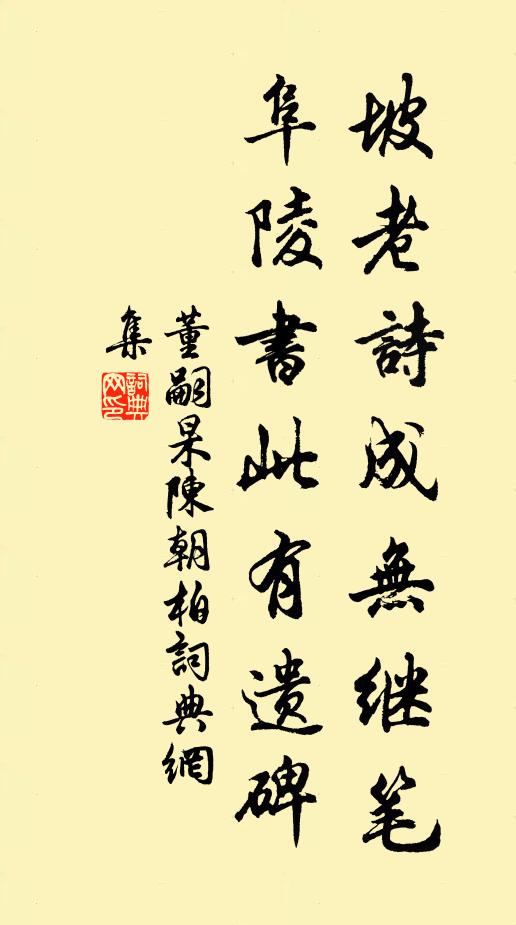 坡老詩成無继笔
阜陵書此有遗碑
董嗣杲陳朝柏詞典網
集
詞典
网印